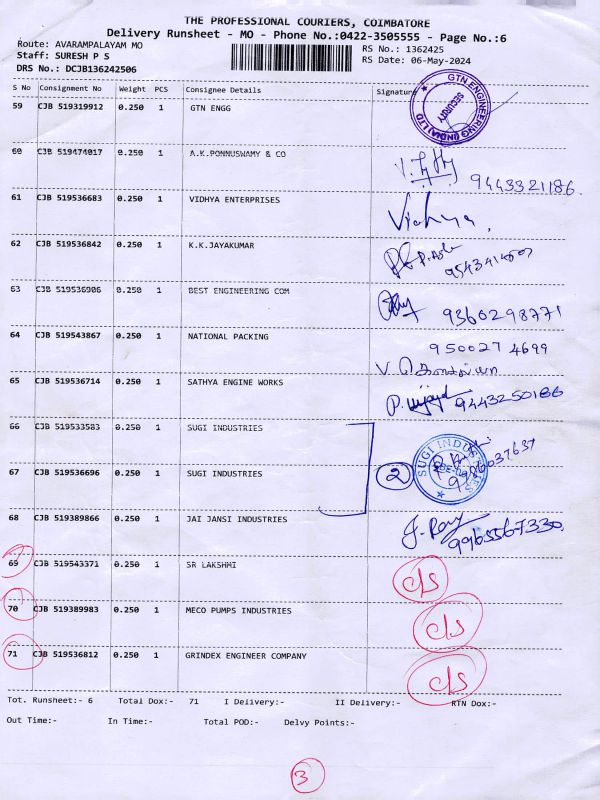 THE PROFESSIONAL COURIERS, COIMBATORE
Delivery Runsheet - MO - Phone No.:0422-3505555 - Page No.:6
Route: AVARAMPALAYAM MO RS No.: 1362425
Staff: SURESH P S RS Date: 06-May-2024
DRS No.: DCJB136242506
S No Consignment No Weight PCS Consignee Details Signature
59 CJB 519319912 0.250 1 GTN ENGG
GTN ENGINEERING (INDIA) LTD SECURITY
60 CJB 519474017 0.250 1 A.K.PONNUSWAMY & CO
9443321186
61 CJB 519536683 0.250 1 VIDHYA ENTERPRISES Vidhya
62 CJB 519536842 0.250 1 K.K.JAYAKUMAR
63 CJB 519536906 0.250 1 BEST ENGINEERING COM 9360298771
64 CJB 519543867 0.250 1 NATIONAL PACKING 950027 4699
65 CJB 519536714 0.250 1 SATHYA ENGINE WORKS 9443250186
66 CJB 519533583 0.250 1 SUGI INDUSTRIES
67 CJB 519536696 0.250 1 SUGI INDUSTRIES 2 SUGI INDUSTRIES
68 CJB 519389866 0.250 1 JAI JANSI INDUSTRIES 9965567330
69 CJB 519543371 0.250 1 SR LAKSHMI c/s
70 CJB 519389983 0.250 1 MECO PUMPS INDUSTRIES c/s
71 CJB 519536812 0.250 1 GRINDEX ENGINEER COMPANY c/s
Tot. Runsheet:- 6 Total Dox:- 71 I Delivery:- II Delivery:- RTN Dox:-
Out Time:- In Time:- Total POD:- Delvy Points:-
3